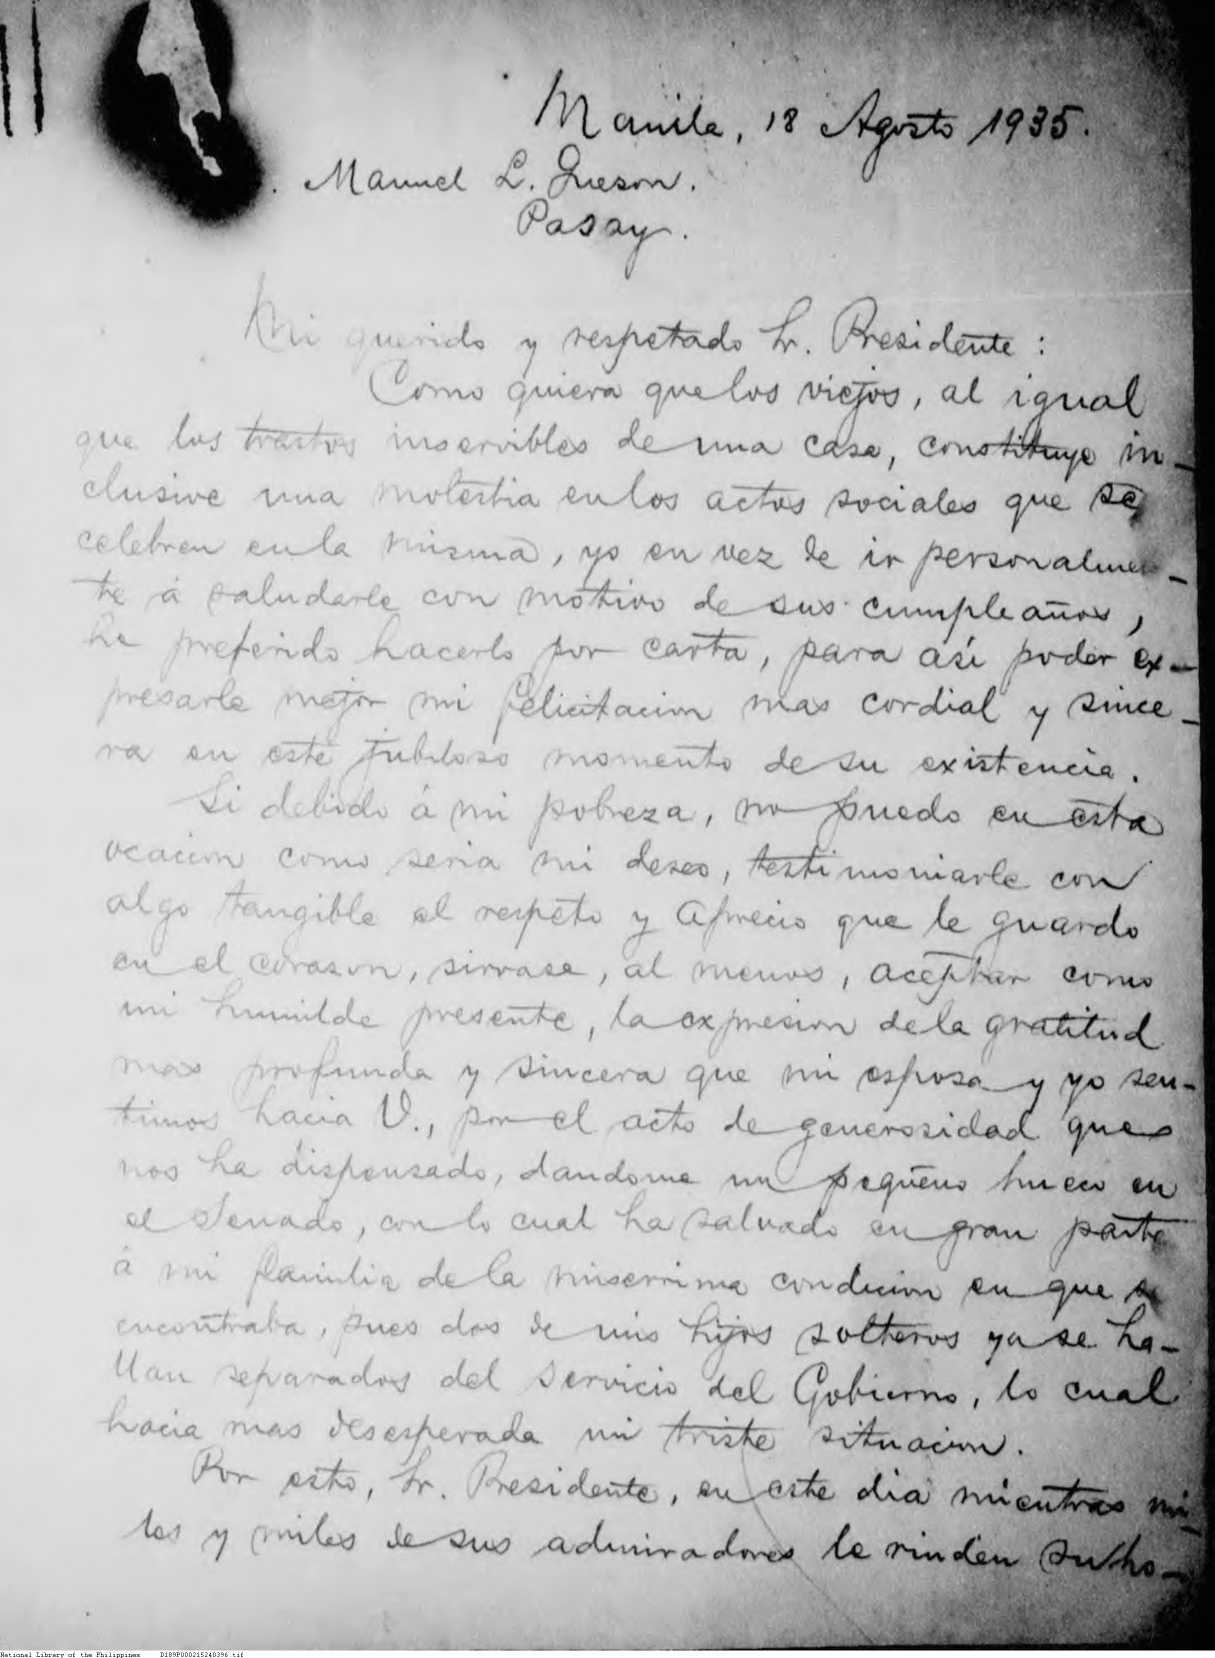 Manila, 18 Agosto 1935.
. Manuel L. Quezon.
Pasay.
Mi querido y respetado Sr. Presidente :
Como quiera que los viejos, al igual
que los trastos inservibles de una casa, constituye in-
clusive una molestia en los actos sociales que se
celebren en la misma, yo en vez de ir personalmen-
te á saludarle con motivo de sus cumpleaños,
he preferido hacerlo por carta, para asi poder ex-
presarle mejor mi felicitacion mas cordial y since-
ra en este jubiloso momento de su existencia.
Si debido á mi pobreza, no puedo en esta
ocacion como seria mi deseo, testimoniarle con
algo tangible el respeto y aprecio que le guardo
en el corason, sirvase, al menos, aceptar como
mi humilde presente, la expresion de la gratitud
mas profunda y sincera que mi esposa y yo sen-
timos hacia V., por el acto de generosidad que
nos ha dispensado, dandome un pequeño hueco en
el Senado, con lo cual ha salvado en gran parte
á mi familia de la miserrima condicion en que se
encontraba, pues dos de mis hijos solteros ya se ha-
llan separados del servicio del Gobierno, lo cual
hacia mas desesperada mi triste situacion.
Por esto, Sr. Presidente, en este dia mientras mi-
les y miles de sus admiradores le rinden su ho-
National Library of the Philippines D189P000215240396.tif